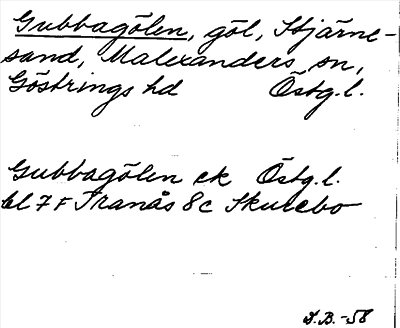 Gubbagölen, göl, Stjärne-
sand, Malexanders sn,
Göstrings hd Östg.l.
Gubbagölen ek Östg.l.
bl 7 F Tranås 8c Skurebo
S.B.-58